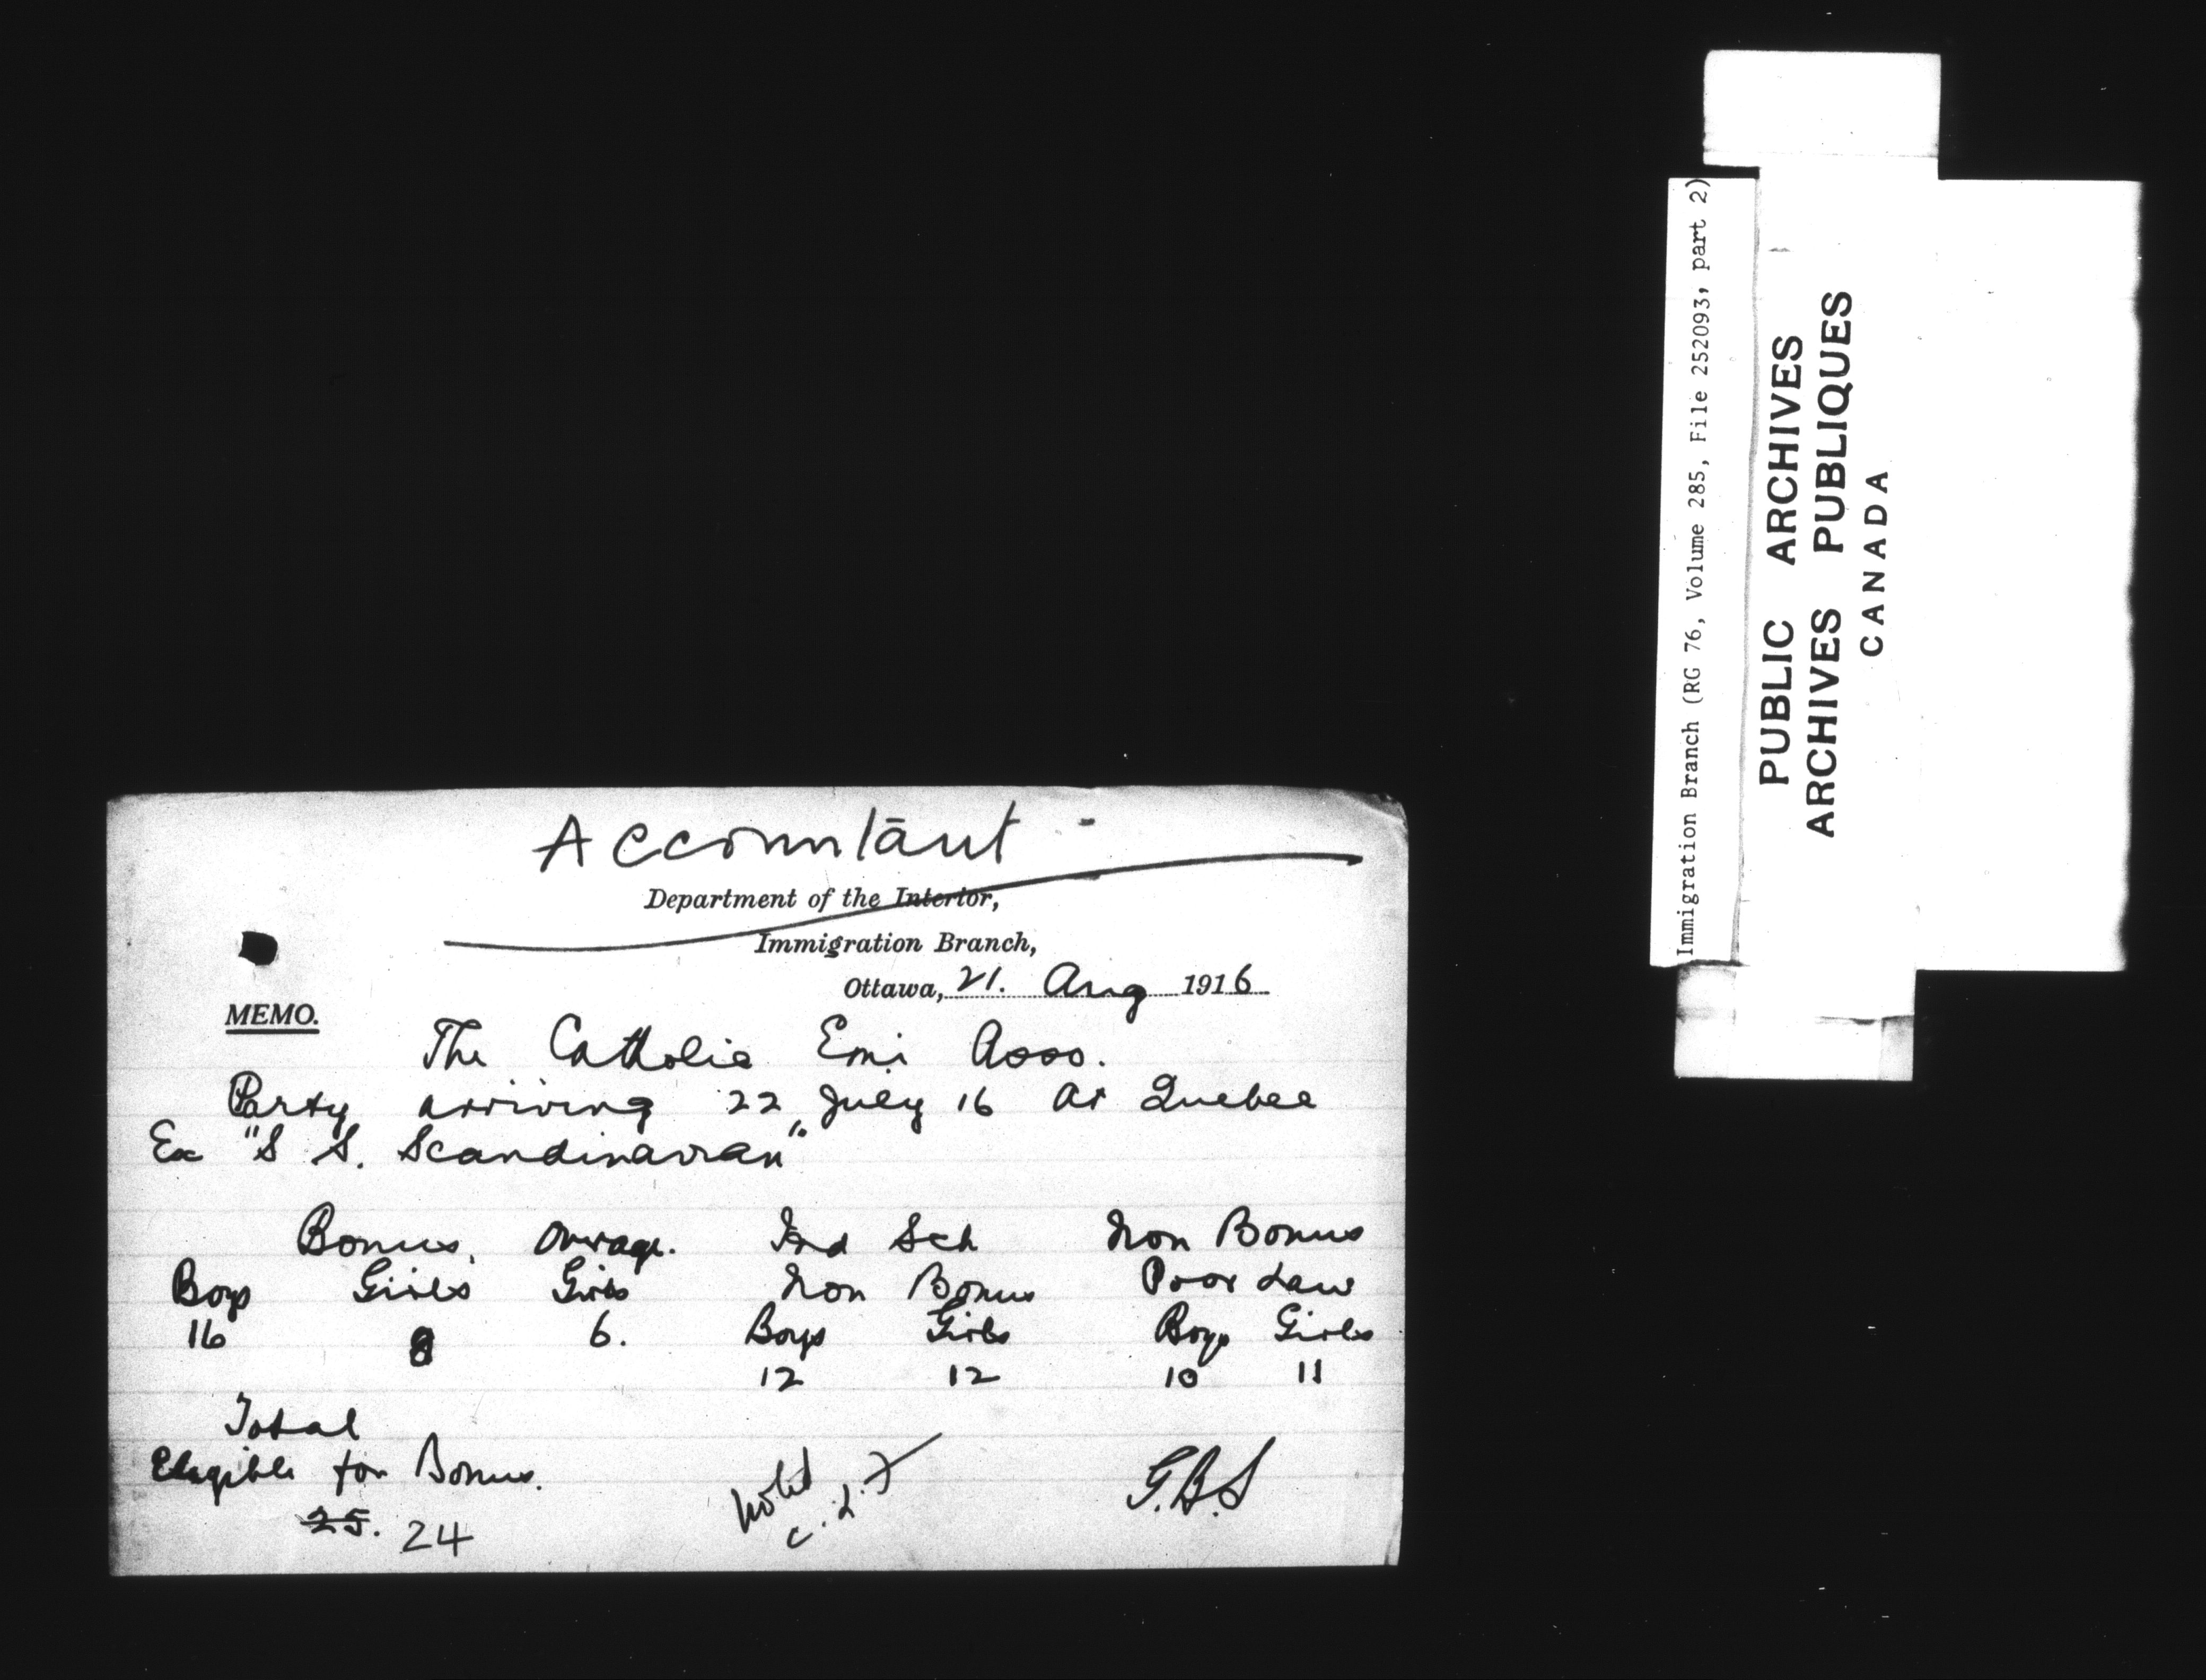 Accountant
Department of the Interior,
Immigration Branch,
Ottawa, 21. Aug 1916
MEMO.
The Catholic Emi Asso.
Party arriving 22 July 16 at Quebec
Ex "S S. Scandinavian"
Bonus, overage. Ind Sch Non Bonus
Boys Girls Girls Non Bonus Poor Law
16 8 6. Boys Girls Boys Girls
12 12 10 11
Total
Elegible for Bonus.
25. 24
Noted
G.B.S
Immigration Branch (RG 76, Volume 285, File 252093, part 2)
PUBLIC ARCHIVES
ARCHIVES PUBLIQUES
CANADA